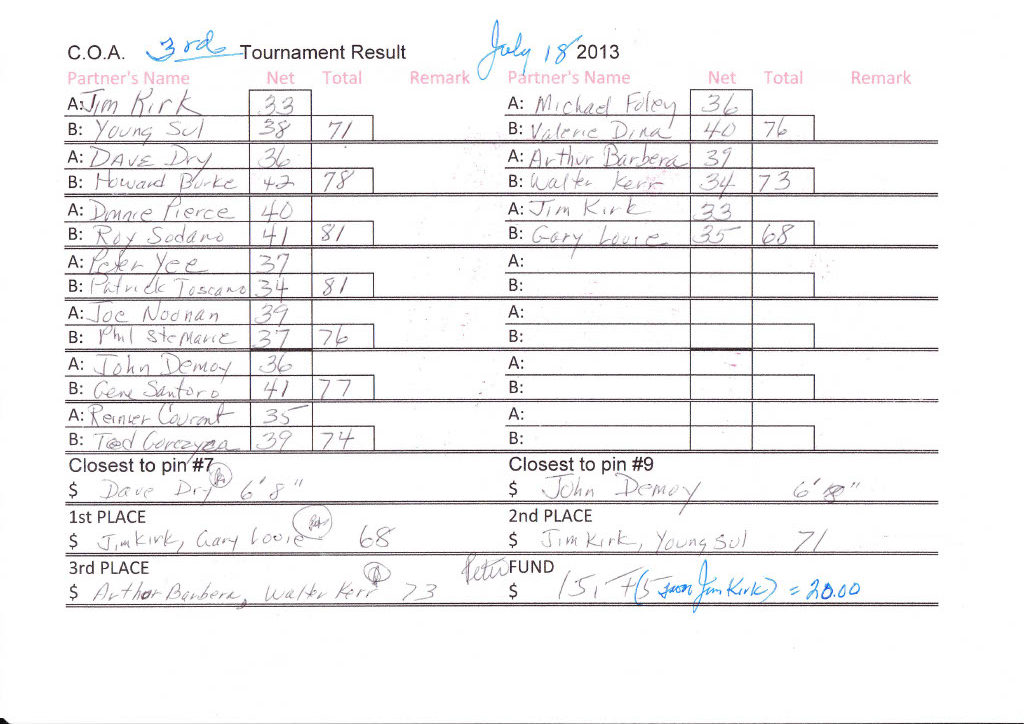 C.O.A. 3rd Tournament Result July 18 2013
Partner's Name Net Total Remark Partner's Name Net Total Remark
A: Jim Kirk 33 A: Michael Foley 36
B: Young Sul 38 71 B: Valerie Dina 40 76
A: DAVE Dry 36 A: Arthur Barbera 39
B: Howard Burke 42 78 B: Walter Kerr 34 73
A: Donnie Pierce 40 A: Jim Kirk 33
B: Roy Sodano 41 81 B: Gary Louie 35 68
A: Peter Yee 37 A:
B: Patrick Toscano 34 81 B:
A: Joe Noonan 39 A:
B: Phil SteMarie 37 76 B:
A: John Demoy 36 A:
B: Gene Santoro 41 77 B:
A: Reinier Courant 35 A:
B: Ted Gorczyca 39 74 B:
Closest to pin #7 Closest to pin #9
$ Dave Dry 6'8" $ John Demoy 6' 8"
1st PLACE 2nd PLACE
$ Jim Kirk, Gary Louie 68 $ Jim Kirk, Young Sul 71
3rd PLACE Peter FUND
$ Arthur Barbera, Walter Kerr 73 $ 15, + (5 from Jim Kirk) = 20.00